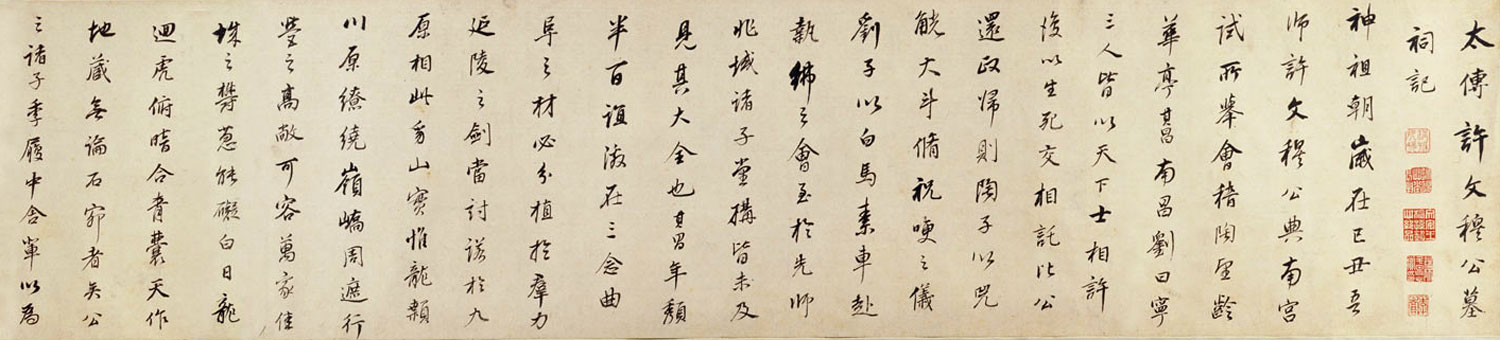 太傅許文穆公墓
祠記
神祖朝歲在己丑吾
師許文穆公典南宮
試所舉會稽陶望齡
華亭其昌南昌劉曰寧
三人皆以天下士相許
後以生死交相託比公
還政歸則陶子以兕
觥大斗脩祝哽之儀
劉子以白馬素車赴
執紼之會至於先師
兆域諸子堂搆皆未及
見其大全也其昌年頹
半百誼激在三念曲
阜之材必分植於羣力
延陵之劍當討諾於九
原相此山實惟龍
川原繚繞嶺嶠周遮行
塋之高敞可容萬家佳
城之鬱蔥能礙白日龍
迴虎俯暗合青囊天作
地藏無論石者矣公
之諸子季履中舍以為